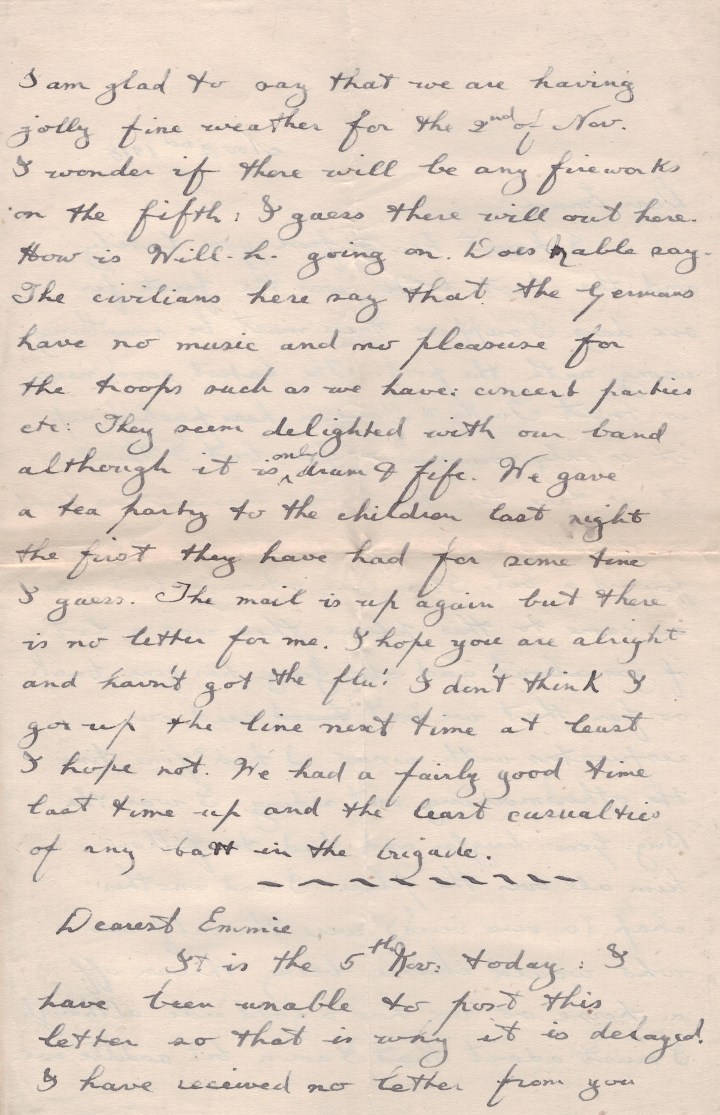 I am glad to say that we are having
jolly fine weather for the 2nd of Nov.
I wonder if there will be any fireworks
on the fifth; I guess there will out here.
How is Will. h. going on. Does Mable say.
The civilians here say that the Germans
have no music and no pleasure for
the troops such as we have: concert parties
etc: They seem delighted with our band
although it is only drum & fife. We gave
a tea party to the children last night
the first they have had for some time
I guess. The mail is up again but there
is no letter for me. I hope you are alright
and havn't got the flu! I don't think I
go up the line next time at least
I hope not. We had a fairly good time
last time up and the least casualties
of any batt in the brigade.
Dearest Emmie,
It is the 5th Nov: today: I
have been unable to post this
letter so that is why it is delayed.
I have received no letter from you